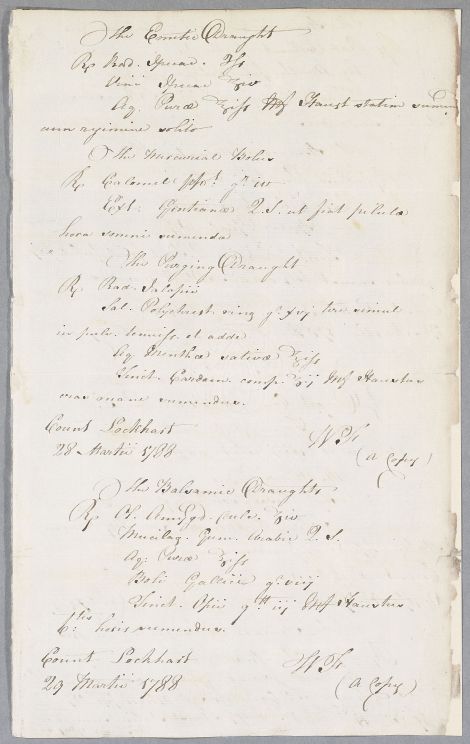 The Emetic Draught
℞ Rad. Ipecac. ʒſs
Vini Ipecac ʒiv
Aq. Puræ ℥iſs Mf Haust statim
cum regimine solito
The Mercurial Bolus
℞ Calomel ppt. gr. iv
Ext. Gentianæ Q.S. ut fiat pilula
hora somni sumenda
The Purging Draught
℞ Rad. Jalapii
Sal. Polychrest. sing gr. xvj tere simul
in pulv. tenuiss. et adde
Aq Menthæ sativæ ℥iſs
Tinct. Cardam. comp. ʒij Mf Haustus
cras mane sumendus.
Count Lockhart
28 Martii 1788
W Fr
(a Copy)
The Balsamic Draughts
℞ Ol. Amygd. dulc. ʒiv
Mucilag. Gum. Arabic Q.S.
Aq: Puræ ℥iſs
Boli Gallici gr. viij
Tinct. Opii gtt iij Mf Haustus
6tis horis sumendus.
Count Lockhart
29 Martii 1788
W Fr
(a Copy)